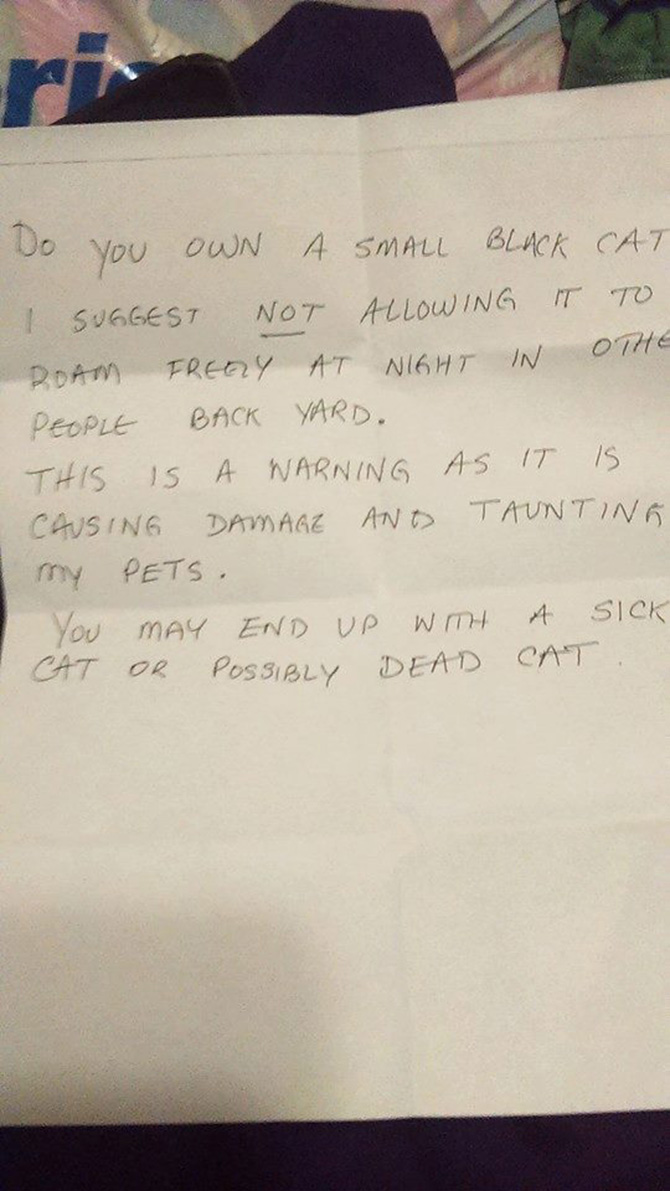 ric
DO YOU OWN A SMALL BLACK CAT
I SUGGEST NOT ALLOWING IT TO
ROAM FREELY AT NIGHT IN OTHE
PEOPLE BACK YARD.
THIS IS A WARNING AS IT IS
CAUSING DAMAGE AND TAUNTING
MY PETS.
YOU MAY END UP WITH A SICK
CAT OR POSSIBLY DEAD CAT.